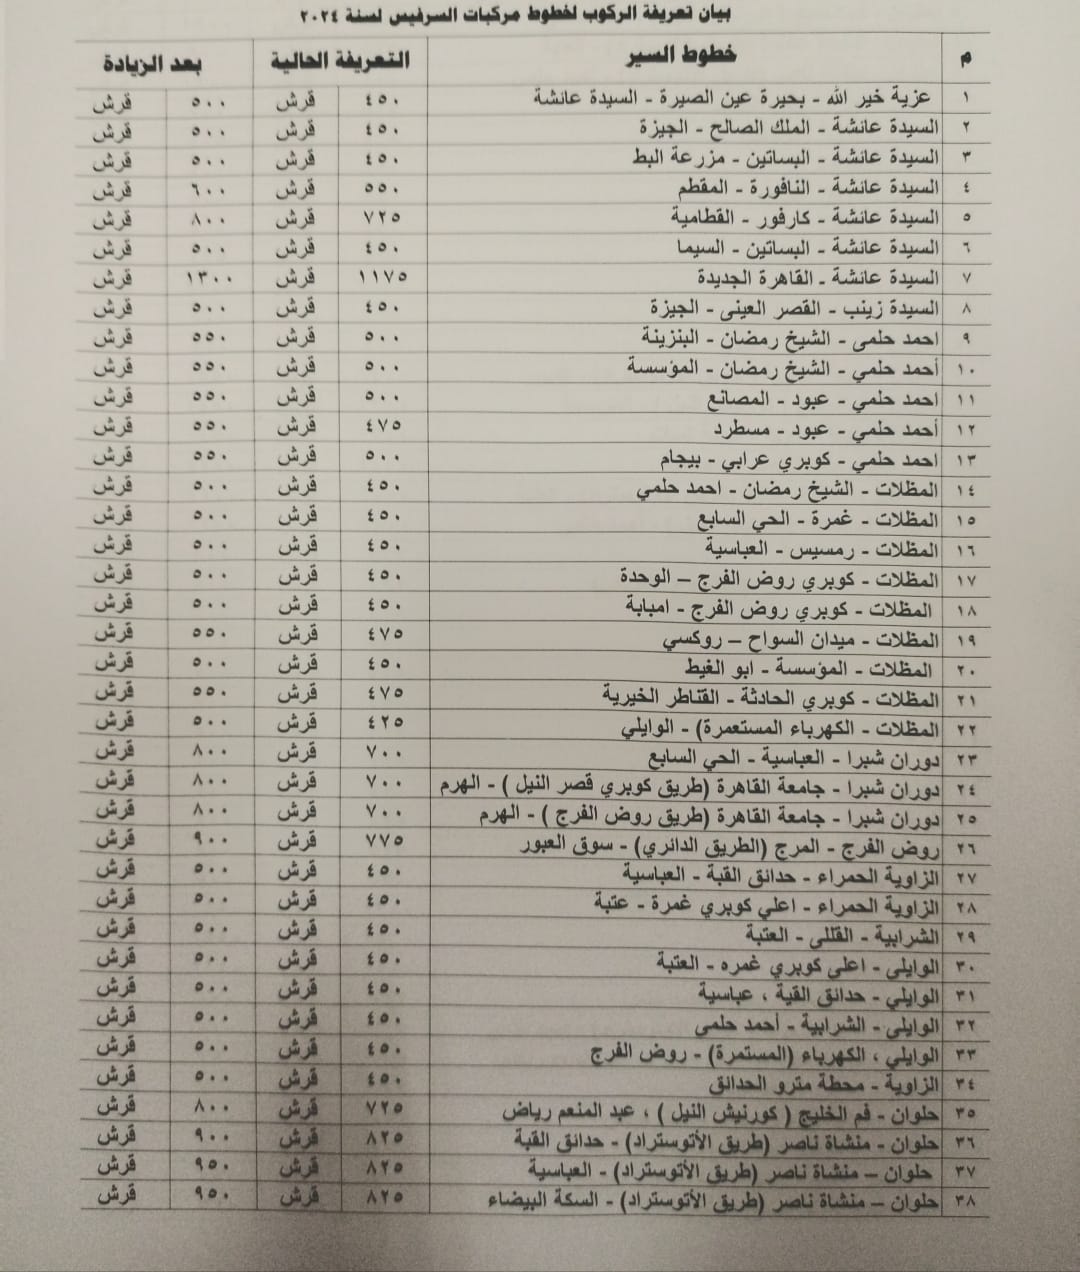 بيان تعريفة الركوب لخطوط مركبات السرفيس لسنة ٢٠٢٤
م خطوط السير التعريفة الحالية بعد الزيادة
١ عزبة خير الله - بحيرة عين الصيرة - السيدة عائشة ٤٥٠ قرش ٥٠٠ قرش
٢ السيدة عائشة - الملك الصالح - الجيزة ٤٥٠ قرش ٥٠٠ قرش
٣ السيدة عائشة - البساتين - مزرعة البط ٤٥٠ قرش ٥٠٠ قرش
٤ السيدة عائشة - النافورة - المقطم ٥٥٠ قرش ٦٠٠ قرش
٥ السيدة عائشة - كارفور - القطامية ٧٢٥ قرش ٨٠٠ قرش
٦ السيدة عائشة - البساتين - السيما ٤٥٠ قرش ٥٠٠ قرش
٧ السيدة عائشة - القاهرة الجديدة ١١٧٥ قرش ١٣٠٠ قرش
٨ السيدة زينب - القصر العينى - الجيزة ٤٥٠ قرش ٥٠٠ قرش
٩ احمد حلمى - الشيخ رمضان - البنزينة ٥٠٠ قرش ٥٥٠ قرش
١٠ أحمد حلمي - الشيخ رمضان - المؤسسة ٥٠٠ قرش ٥٥٠ قرش
١١ احمد حلمي - عبود - المصانع ٥٠٠ قرش ٥٥٠ قرش
١٢ أحمد حلمي - عبود - مسطرد ٤٧٥ قرش ٥٥٠ قرش
١٣ احمد حلمي - كوبري عرابي - بيجام ٥٠٠ قرش ٥٥٠ قرش
١٤ المظلات - الشيخ رمضان - احمد حلمي ٤٥٠ قرش ٥٠٠ قرش
١٥ المظلات - غمرة - الحي السابع ٤٥٠ قرش ٥٠٠ قرش
١٦ المظلات - رمسيس - العباسية ٤٥٠ قرش ٥٠٠ قرش
١٧ المظلات - كوبري روض الفرج – الوحدة ٤٥٠ قرش ٥٠٠ قرش
١٨ المظلات - كوبري روض الفرج - امبابة ٤٥٠ قرش ٥٠٠ قرش
١٩ المظلات - ميدان السواح – روكسي ٤٧٥ قرش ٥٥٠ قرش
٢٠ المظلات - المؤسسة - ابو الغيط ٤٥٠ قرش ٥٠٠ قرش
٢١ المظلات - كوبري الحادثة - القناطر الخيرية ٤٧٥ قرش ٥٥٠ قرش
٢٢ المظلات - الكهرباء المستعمرة) - الوايلي ٤٢٥ قرش ٥٠٠ قرش
٢٣ دوران شبرا - العباسية - الحي السابع ٧٠٠ قرش ٨٠٠ قرش
٢٤ دوران شبرا - جامعة القاهرة (طريق كوبري قصر النيل ) - الهرم ٧٠٠ قرش ٨٠٠ قرش
٢٥ دوران شبرا - جامعة القاهرة (طريق روض الفرج ) - الهرم ٧٠٠ قرش ٨٠٠ قرش
٢٦ روض الفرج - المرج (الطريق الدائري) - سوق العبور ٧٧٥ قرش ٩٠٠ قرش
٢٧ الزاوية الحمراء - حدائق القبة - العباسية ٤٥٠ قرش ٥٠٠ قرش
٢٨ الزاوية الحمراء - اعلي كوبري غمرة - عتبة ٤٥٠ قرش ٥٠٠ قرش
٢٩ الشرابية - القللى - العتبة ٤٥٠ قرش ٥٠٠ قرش
٣٠ الوايلي - اعلي كوبري غمره - العتبة ٤٥٠ قرش ٥٠٠ قرش
٣١ الوايلي - حدائق القبة ، عباسية ٤٥٠ قرش ٥٠٠ قرش
٣٢ الوايلي - الشرابية - أحمد حلمى ٤٥٠ قرش ٥٠٠ قرش
٣٣ الوايلي ، الكهرباء (المستمرة) - روض الفرج ٤٥٠ قرش ٥٠٠ قرش
٣٤ الزاوية - محطة مترو الحدائق ٤٥٠ قرش ٥٠٠ قرش
٣٥ حلوان - فم الخليج ( كورنيش النيل ) ، عبد المنعم رياض ٧٢٥ قرش ٨٠٠ قرش
٣٦ حلوان - منشاة ناصر (طريق الأتوستراد) - حدائق القبة ٨٢٥ قرش ٩٠٠ قرش
٣٧ حلوان – منشاة ناصر (طريق الأتوستراد) - العباسية ٨٢٥ قرش ٩٥٠ قرش
٣٨ حلوان – منشاة ناصر (طريق الأتوستراد) - السكة البيضاء ٨٢٥ قرش ٩٥٠ قرش